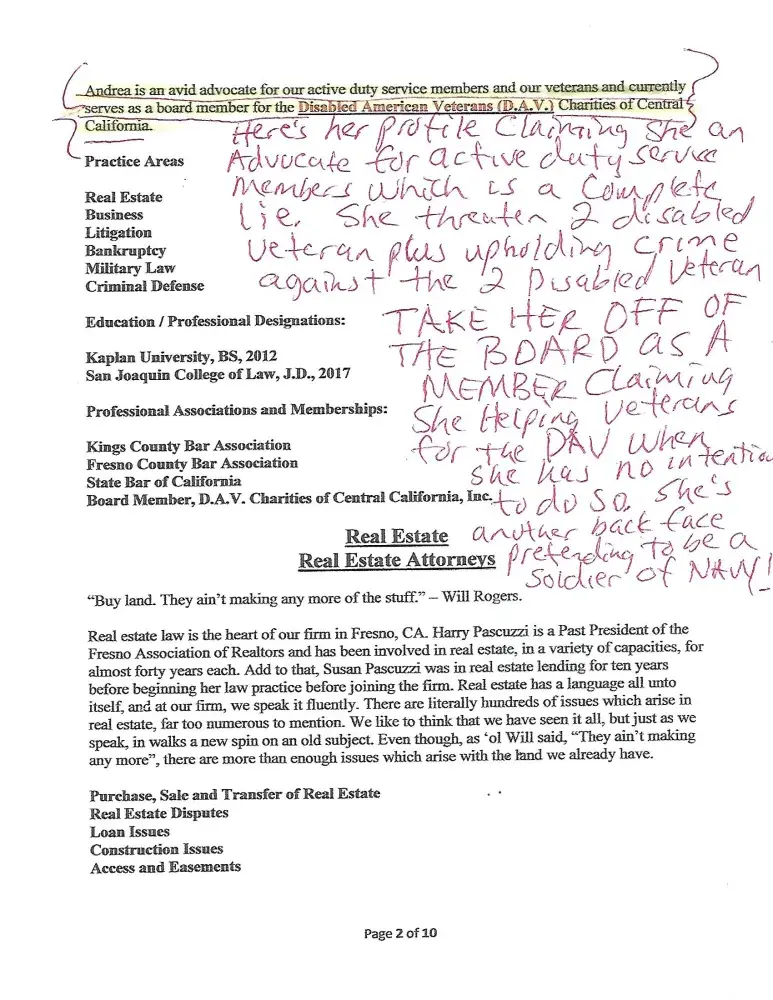 Andrea is an avid advocate for our active duty service members and our veterans and currently
serves as a board member for the Disabled American Veterans (D.A.V.) Charities of Central
California.
Here's her profile Claiming She an
Advocate for active duty service
Members which is a Complete
Lie. She threaten 2 disabled
Veteran plus upholding crime
against the 2 Disabled Veteran
TAKE HER OFF OF
THE BOARD as A
MEMBER Claiming
She Helping Veterans
for the DAV When
she has no intention
to do so. She's
another back face
pretending to be a
Soldier of NAVY!
Practice Areas
Real Estate
Business
Litigation
Bankruptcy
Military Law
Criminal Defense
Education / Professional Designations:
Kaplan University, BS, 2012
San Joaquin College of Law, J.D., 2017
Professional Associations and Memberships:
Kings County Bar Association
Fresno County Bar Association
State Bar of California
Board Member, D.A.V. Charities of Central California, Inc.
Real Estate
Real Estate Attorneys
“Buy land. They ain’t making any more of the stuff.” – Will Rogers.
Real estate law is the heart of our firm in Fresno, CA. Harry Pascuzzi is a Past President of the
Fresno Association of Realtors and has been involved in real estate, in a variety of capacities, for
almost forty years each. Add to that, Susan Pascuzzi was in real estate lending for ten years
before beginning her law practice before joining the firm. Real estate has a language all unto
itself, and at our firm, we speak it fluently. There are literally hundreds of issues which arise in
real estate, far too numerous to mention. We like to think that we have seen it all, but just as we
speak, in walks a new spin on an old subject. Even though, as ‘ol Will said, “They ain’t making
any more”, there are more than enough issues which arise with the land we already have.
Purchase, Sale and Transfer of Real Estate
Real Estate Disputes
Loan Issues
Construction Issues
Access and Easements
Page 2 of 10